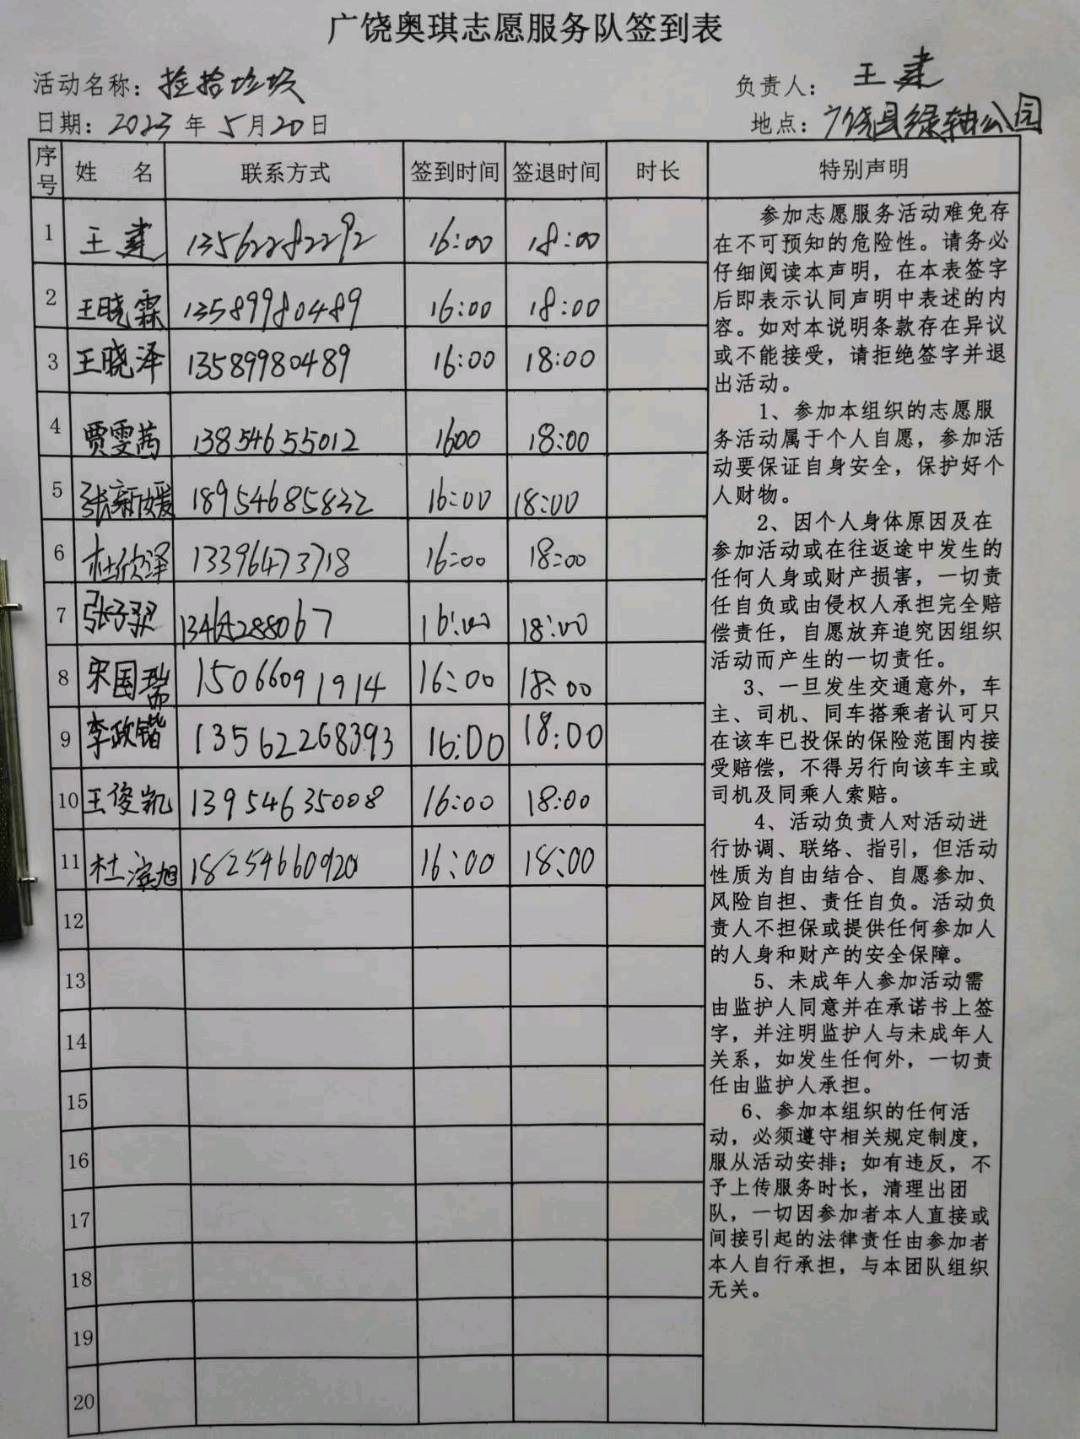 广饶奥琪志愿服务队签到表
活动名称：捡拾垃圾 负责人：王建
日期：2023年5月20日 地点：广饶县绿轴公园
序号 姓名 联系方式 签到时间 签退时间 时长 特别声明
1 王建 13562282292 16:00 18:00
2 王晓霖 13589980489 16:00 18:00
3 王晓泽 13589980489 16:00 18:00
4 贾雯茜 13854655012 1600 18:00
5 张新媛 18954685832 16:00 18:00
6 杜欣泽 13396473718 16:00 18:00
7 16:00 18:00
8 宋国瑞 15066091914 16:00 18:00
9 李政锴 13562268393 16:00 18:00
10 王俊凯 13954635008 16:00 18:00
11 杜滨旭 18254660920 16:00 18:00
12
13
14
15
16
17
18
19
20
参加志愿服务活动难免存
在不可预知的危险性。请务必
仔细阅读本声明，在本表签字
后即表示认同声明中表述的内
容。如对本说明条款存在异议
或不能接受，请拒绝签字并退
出活动。
1、参加本组织的志愿服
务活动属于个人自愿，参加活
动要保证自身安全，保护好个
人财物。
2、因个人身体原因及在
参加活动或在往返途中发生的
任何人身或财产损害，一切责
任自负或由侵权人承担完全赔
偿责任，自愿放弃追究因组织
活动而产生的一切责任。
3、一旦发生交通意外，车
主、司机、同车搭乘者认可只
在该车已投保的保险范围内接
受赔偿，不得另行向该车主或
司机及同乘人索赔。
4、活动负责人对活动进
行协调、联络、指引，但活动
性质为自由结合、自愿参加、
风险自担、责任自负。活动负
责人不担保或提供任何参加人
的人身和财产的安全保障。
5、未成年人参加活动需
由监护人同意并在承诺书上签
字，并注明监护人与未成年人
关系，如发生任何外，一切责
任由监护人承担。
6、参加本组织的任何活
动，必须遵守相关规定制度，
服从活动安排；如有违反，不
予上传服务时长，清理出团
队，一切因参加者本人直接或
间接引起的法律责任由参加者
本人自行承担，与本团队组织
无关。